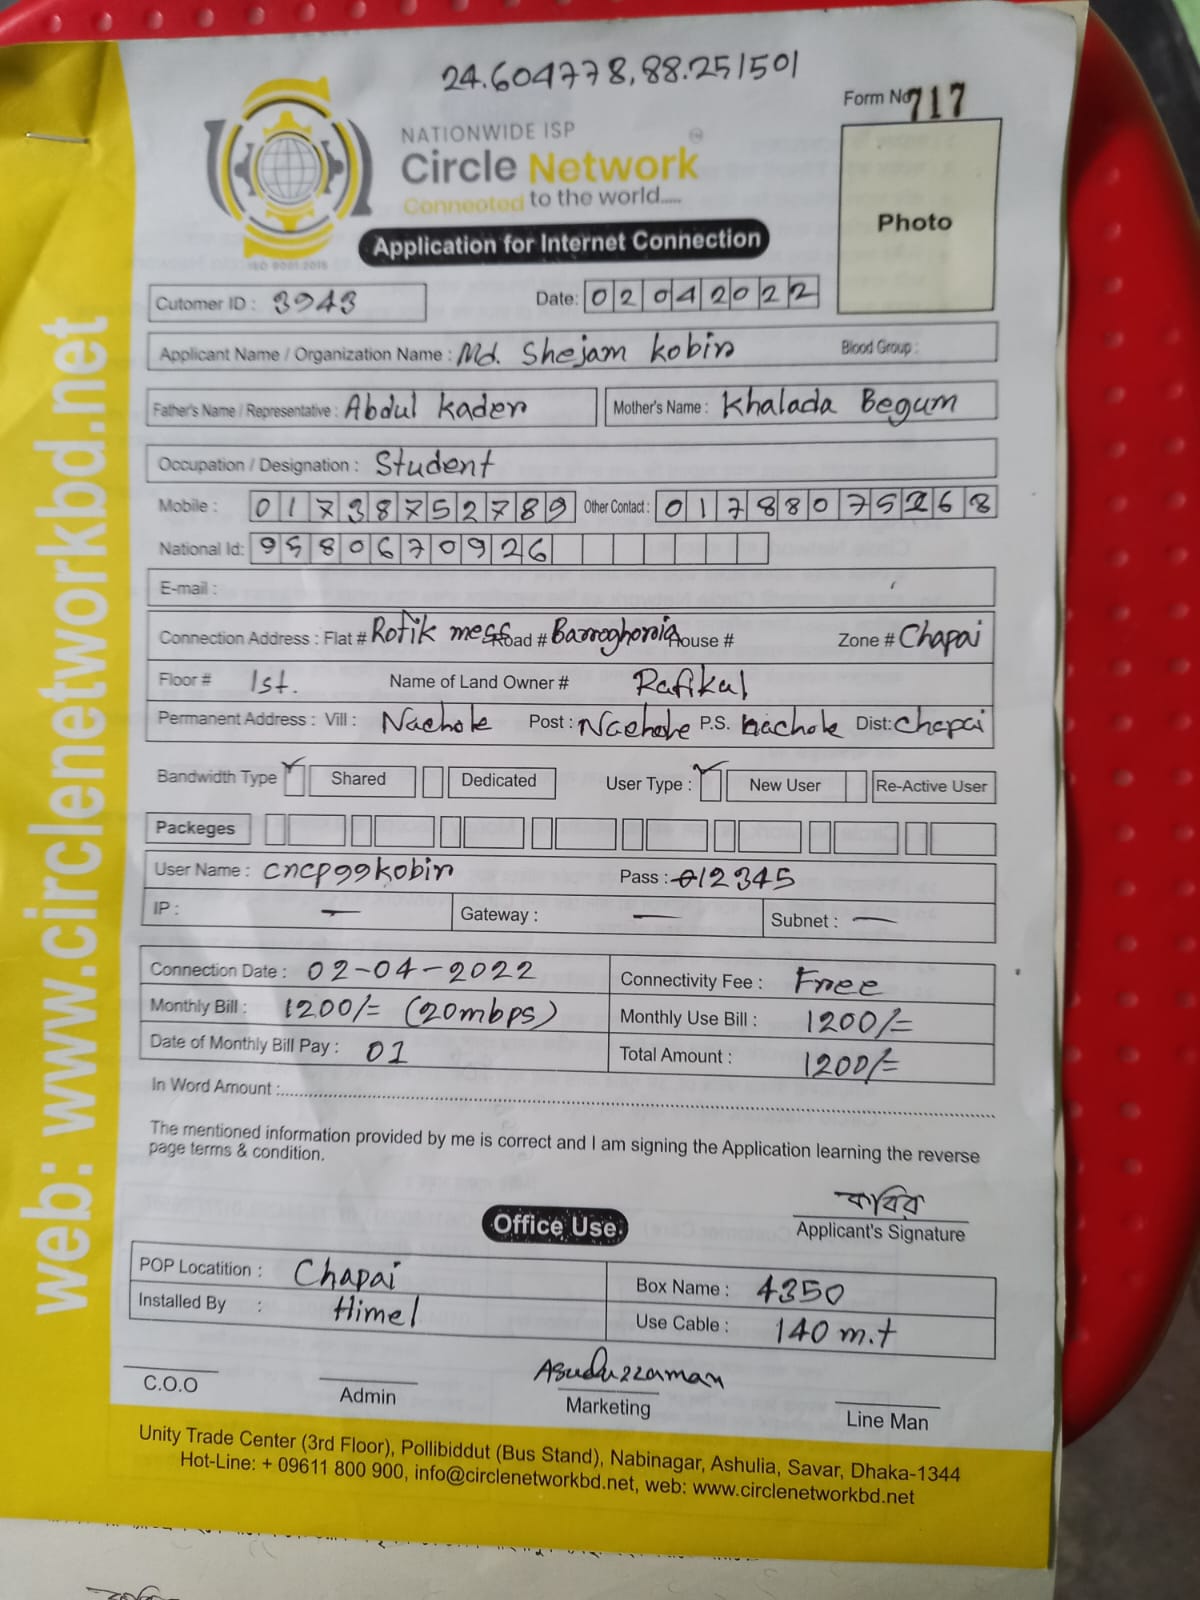 24.604778,88.251501
Form No 717
NATIONWIDE ISP
Circle Network
Connected to the world.....
ISO 9001:2015
Photo
Application for Internet Connection
Cutomer ID : 3943 Date: 02042022
Applicant Name / Organization Name : Md. Shejam kobir Blood Group :
Father's Name / Representative : Abdul kader Mother's Name : Khalada Begum
Occupation / Designation : Student
Mobile : 01738752789 Other Contact : 01788075268
National Id: 9580670926
E-mail :
Connection Address : Flat # Rofik mess Road # Barroghoria House # Zone # Chapai
Floor # 1st. Name of Land Owner # Rafikul
Permanent Address : Vill : Nachole Post : Nachole P.S. nachole Dist: Chapai
Bandwidth Type Shared Dedicated User Type : New User Re-Active User
Packeges
User Name : cncp99kobir Pass : 012345
IP : — Gateway : — Subnet : —
Connection Date : 02-04-2022 Connectivity Fee : Free
Monthly Bill : 1200/= (20mbps) Monthly Use Bill : 1200/=
Date of Monthly Bill Pay : 01 Total Amount : 1200/=
In Word Amount :
The mentioned information provided by me is correct and I am signing the Application learning the reverse
page terms & condition.
কাবির
Applicant's Signature
Office Use
POP Locatition : Chapai Box Name : 4350
Installed By : Himel Use Cable : 140 m.t
Asaduzzaman
C.O.O Admin Marketing Line Man
Unity Trade Center (3rd Floor), Pollibiddut (Bus Stand), Nabinagar, Ashulia, Savar, Dhaka-1344
Hot-Line: + 09611 800 900, info@circlenetworkbd.net, web: www.circlenetworkbd.net
web: www.circlenetworkbd.net